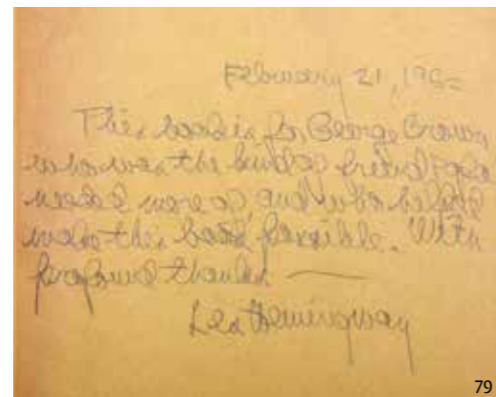 February 21, 1962
This book is for George Brown
who was the kind of friend Papa
needed more of and who helped
make this book possible. With
profound thanks —
Les Hemingway
79